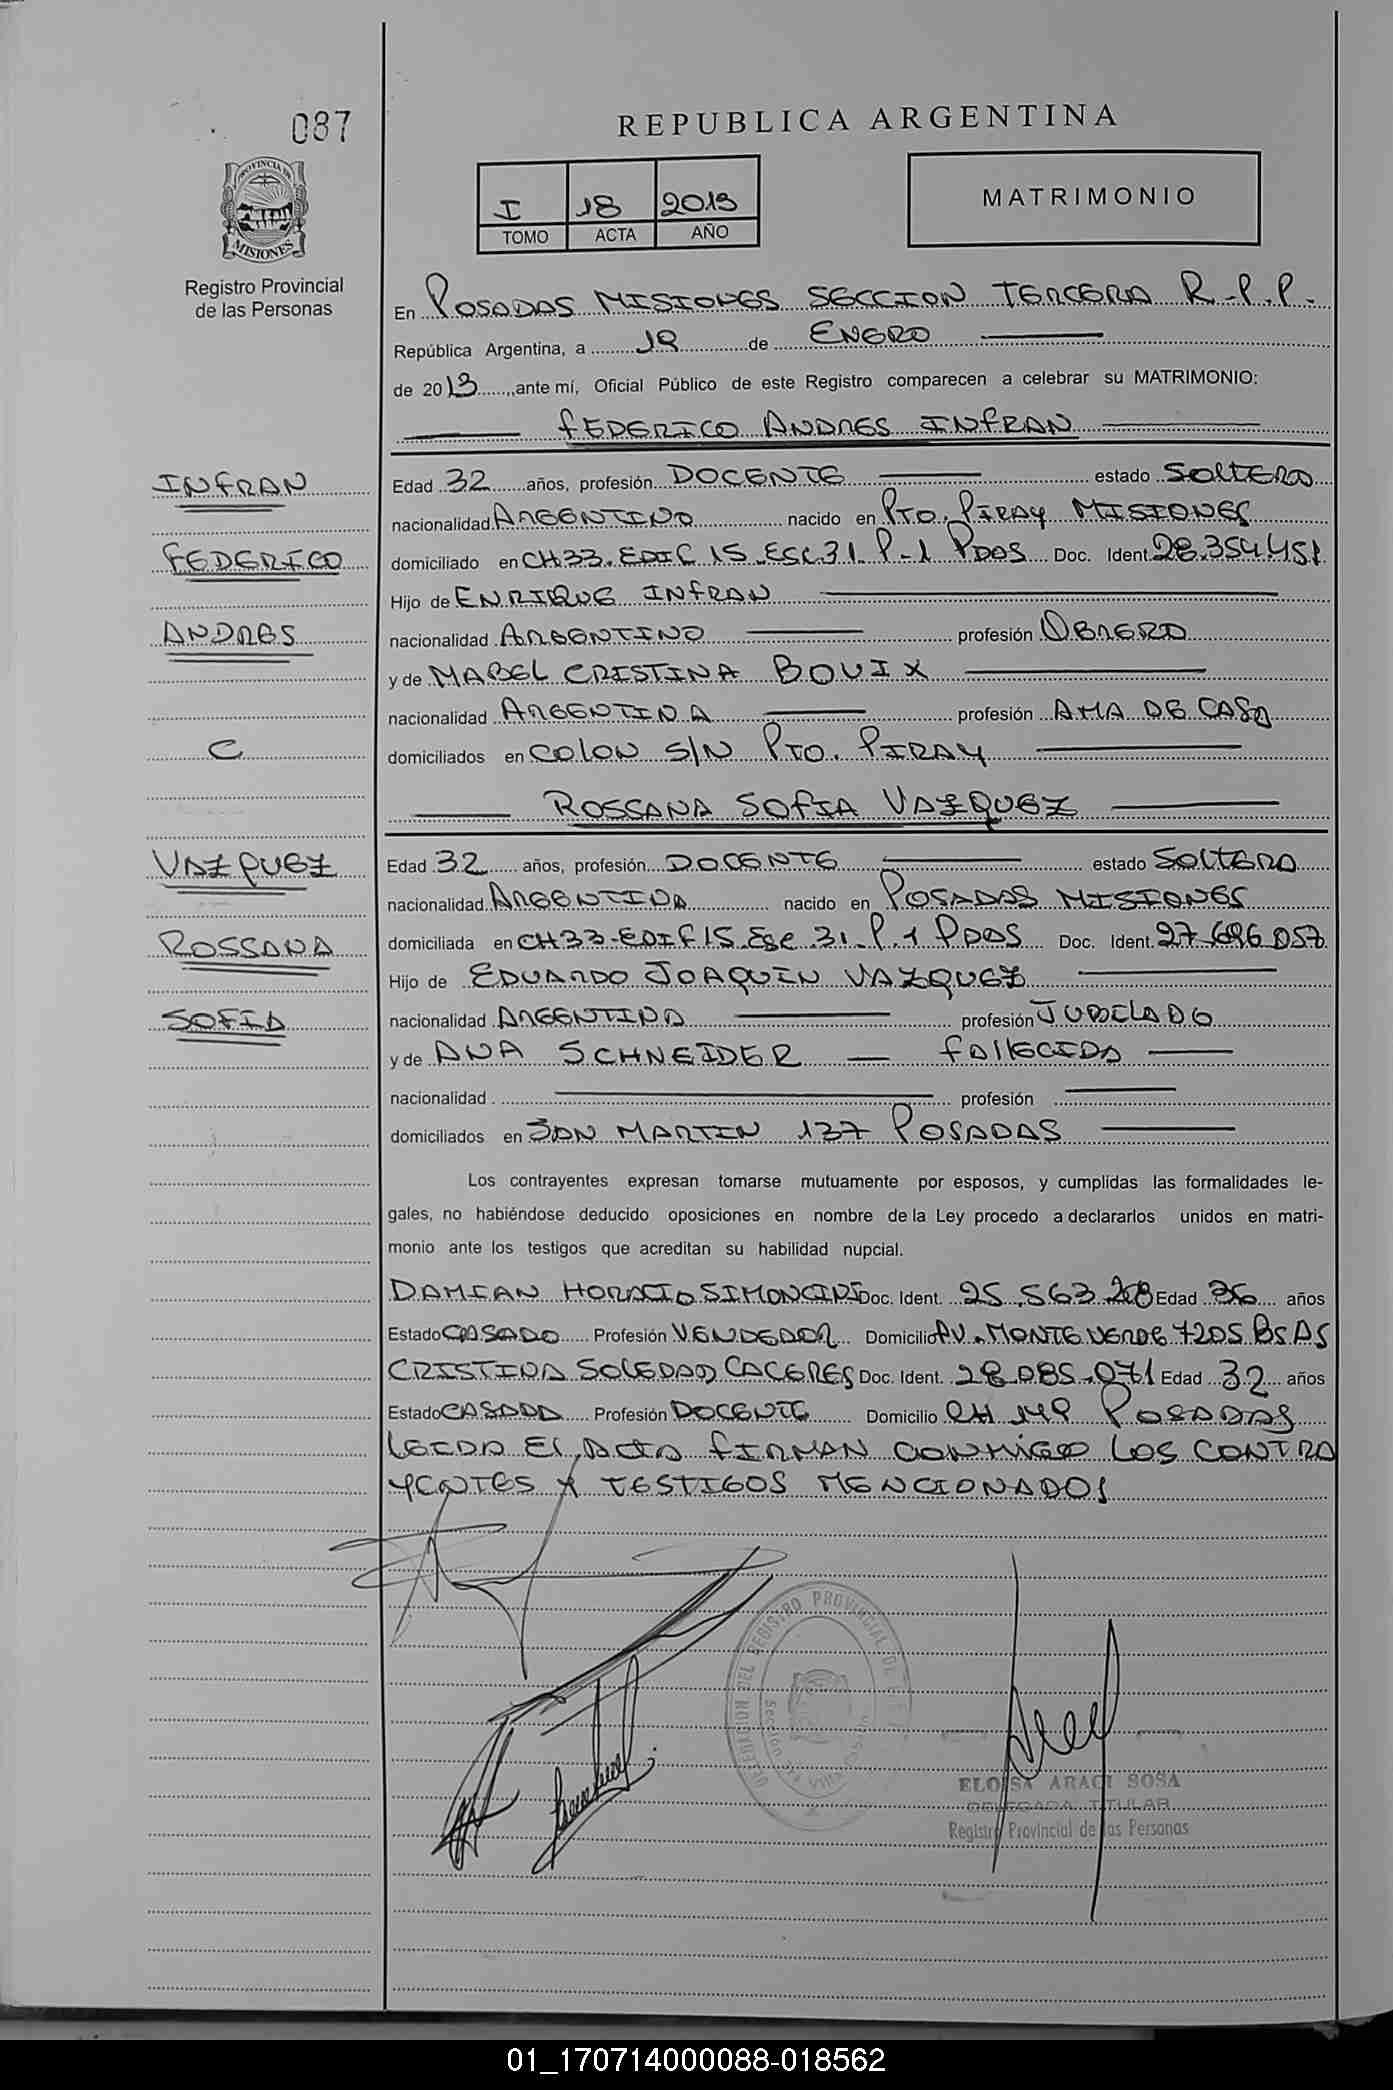 087
REPUBLICA ARGENTINA
PROVINCIA DE
MISIONES
I 18 2013
TOMO ACTA AÑO
MATRIMONIO
Registro Provincial
de las Personas
En POSADAS MISIONES SECCION TERCERA R.P.P.
República Argentina, a 18 de ENERO
de 2013, ante mí, Oficial Público de este Registro comparecen a celebrar su MATRIMONIO:
FEDERICO ANDRES INFRAN
INFRAN
Edad 32 años, profesión DOCENTE estado SOLTERO
nacionalidad ARGENTINO nacido en PTO. PIRAY MISIONES
FEDERICO
domiciliado en CH33.EDIF 15 ESC.31 P-1 PDOS Doc. Ident. 28.354.451
Hijo de ENRIQUE INFRAN
ANDRES
nacionalidad ARGENTINO profesión OBRERO
y de MABEL CRISTINA BOUIX
nacionalidad ARGENTINA profesión AMA DE CASA
C
domiciliados en COLON S/N PTO. PIRAY
ROSSANA SOFIA VAZQUEZ
VAZQUEZ
Edad 32 años, profesión DOCENTE estado SOLTERA
nacionalidad ARGENTINA nacido en POSADAS MISIONES
ROSSANA
domiciliada en CH33-EDIF15 Esc. 31. P.1 PDOS Doc. Ident. 27.696.057
Hijo de EDUARDO JOAQUIN VAZQUEZ
SOFIA
nacionalidad ARGENTINA profesión JUBILADO
y de ANA SCHNEIDER — FALLECIDA
nacionalidad profesión
domiciliados en SAN MARTIN 137 POSADAS
Los contrayentes expresan tomarse mutuamente por esposos, y cumplidas las formalidades le-
gales, no habiéndose deducido oposiciones en nombre de la Ley procedo a declararlos unidos en matri-
monio ante los testigos que acreditan su habilidad nupcial.
DAMIAN HORACIO SIMONCINI Doc. Ident. 25.563.268 Edad 36 años
Estado CASADO Profesión VENDEDOR Domicilio AV. MONTEVERDE 7205 BSAS
CRISTINA SOLEDAD CACERES Doc. Ident. 28.085.071 Edad 32 años
Estado CASADA Profesión DOCENTE Domicilio CH 149 POSADAS
LEIDA EL ACTA FIRMAN CONMIGO LOS CONTRA
YENTES Y TESTIGOS MENCIONADOS
DELEGACION DEL REGISTRO PROVINCIAL DE
Sección 3ra Villa
ELOISA ARACI SOSA
DELEGADA TITULAR
Registro Provincial de las Personas
01_170714000088-018562